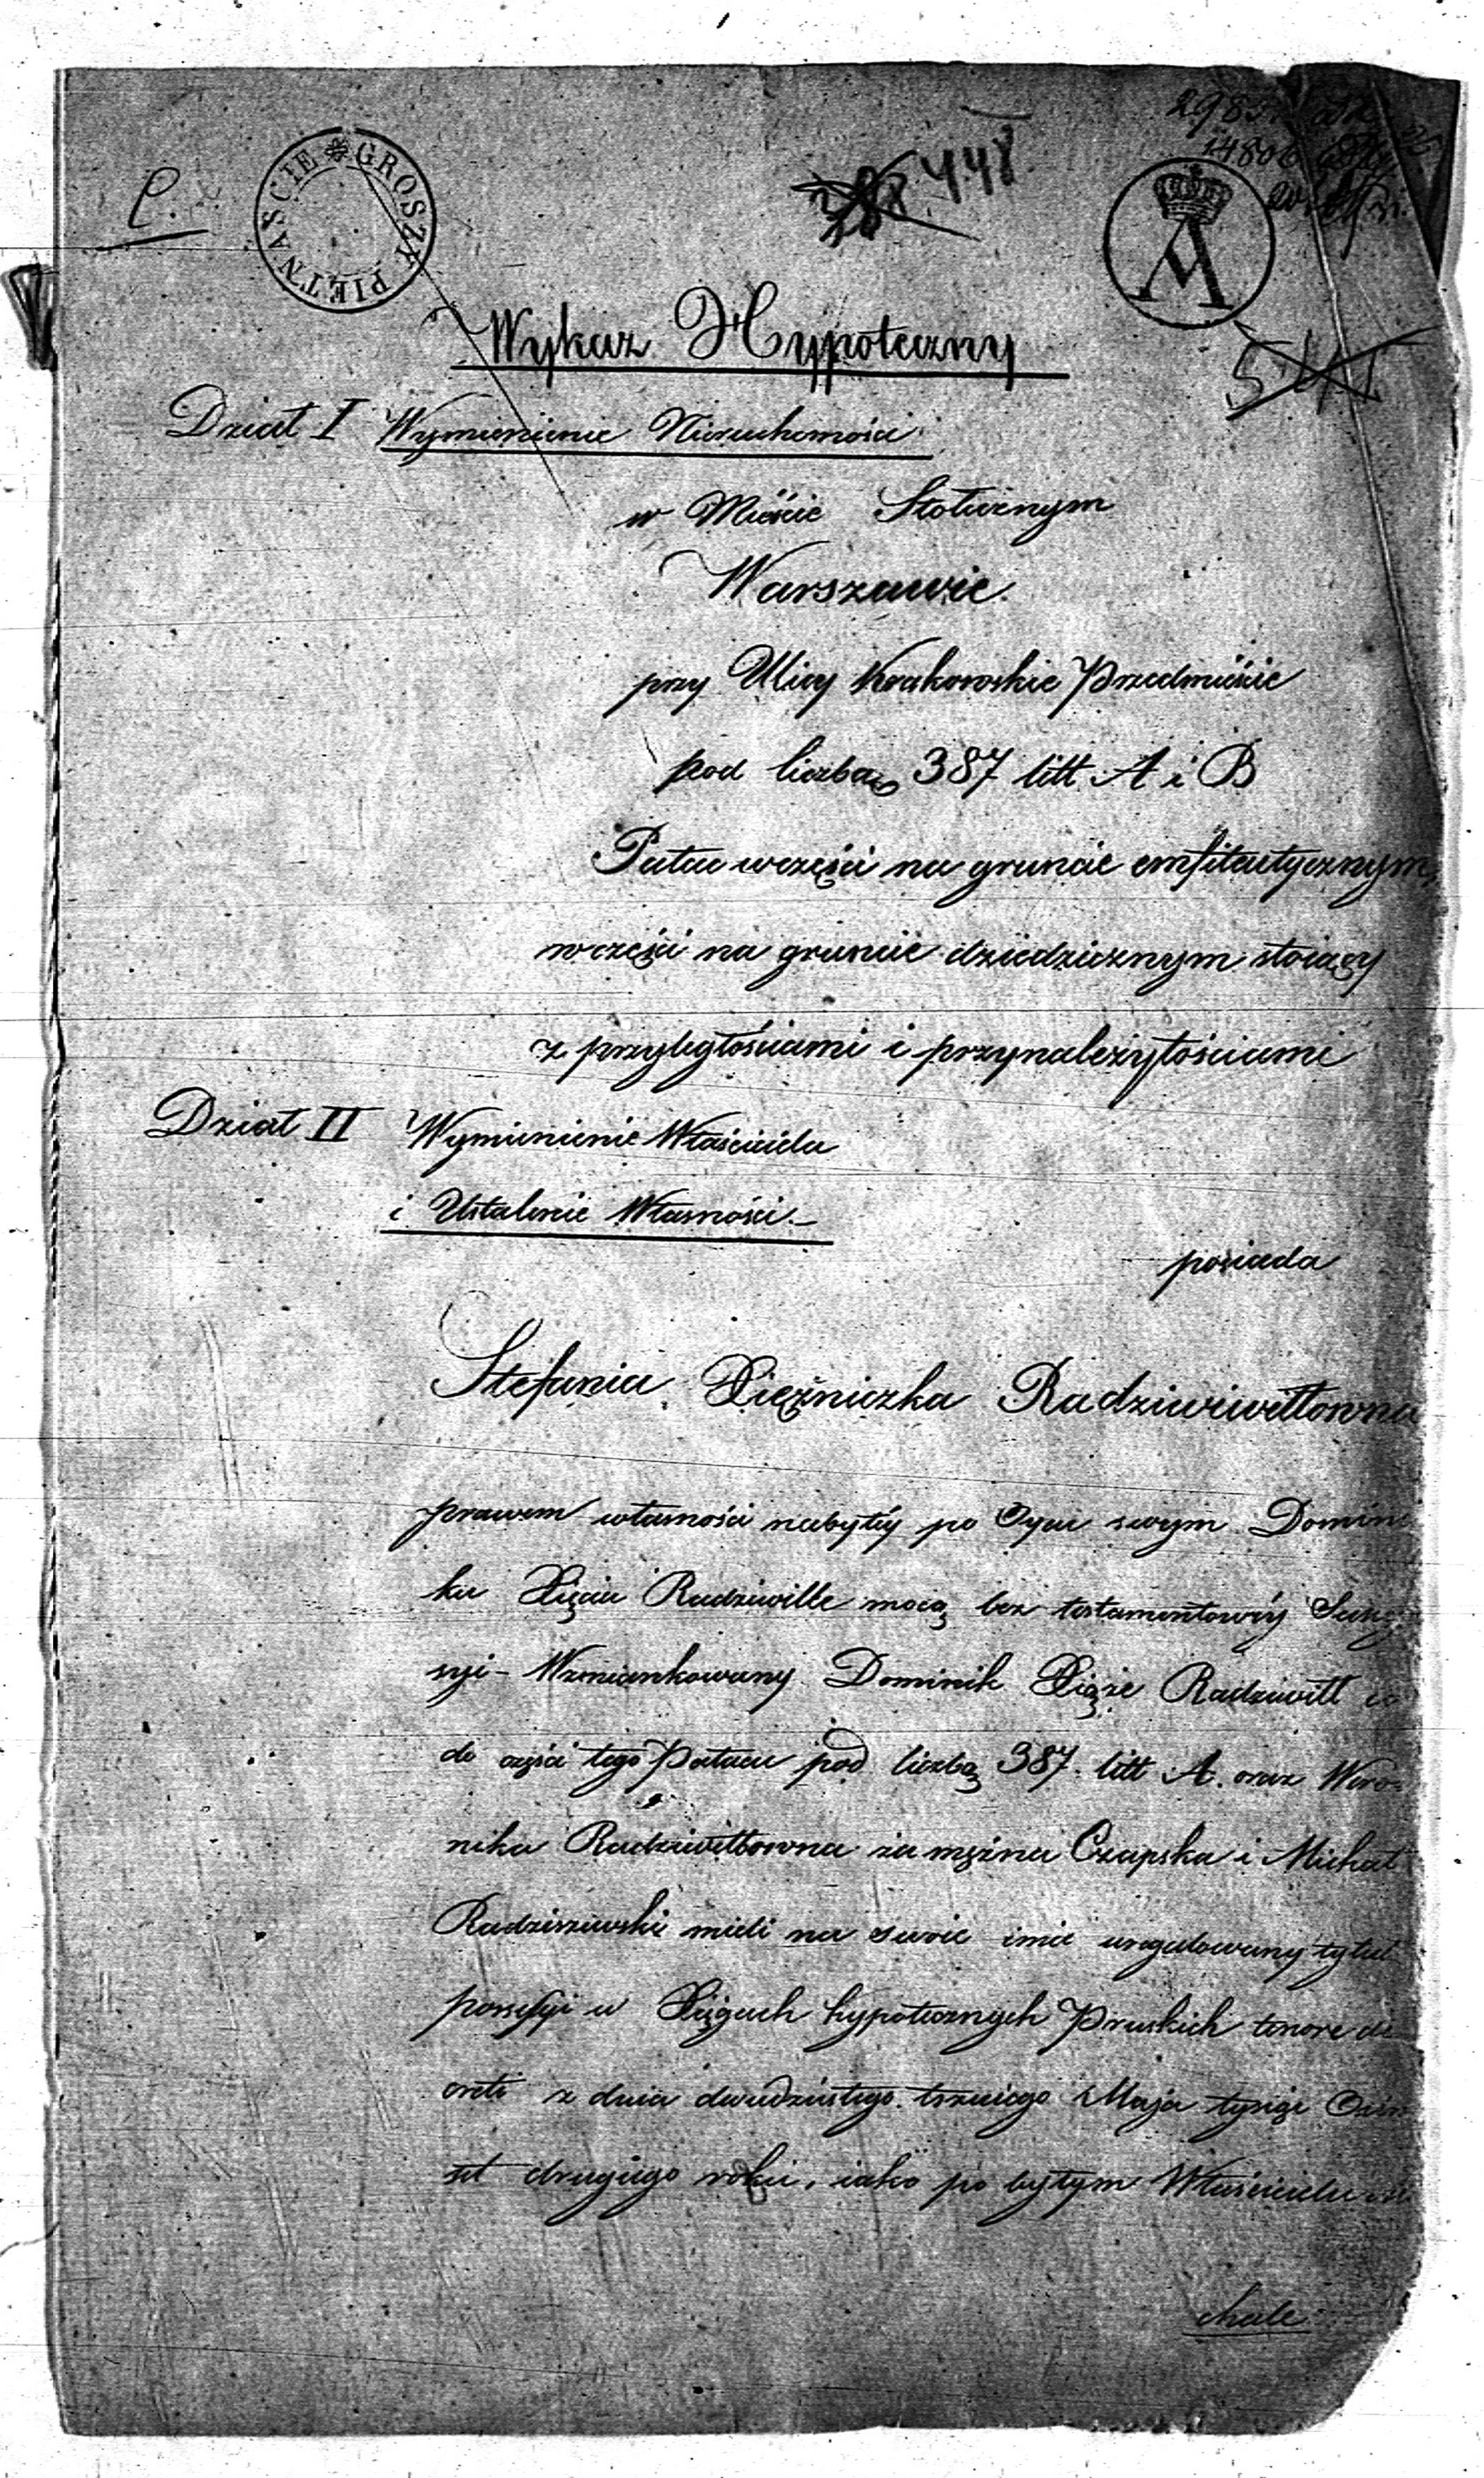 C.
GROSZY PIĘTNAŚCIE
448
Wykaz Hypoteczny
Dział I Wymienienie Nieruchomości
w Mieście Stołecznym
Warszawie
przy Ulicy Krakowskie Przedmieście
pod liczbą 387 litt. A i B
Pałac wczęści na gruncie emfiteutycznym,
wczęści na gruncie dziedzicznym stoiący
z przyległościami i przynależytościami
Dział II Wymienienie Właściciela
i Ustalenie Własności.–
posiada
Stefania Xiężniczka Radziwiwiłłowna
prawem własności nabytéy po Oycu swym Domini
ku Xięciu Radziwille mocą bez testamentowéy Sukce
syi – Wzmiankowany Dominik Xiąże Radziwiłł co
do części tego Pałacu pod liczbą 387. litt A. oraz Wero
nika Radziwiłłowna za mężna Czapska i Michał
Radziszewski mieli na swoie imie uregulowany tytuł
possessyi w Xięgach hypotecznych Pruskich tenore de
creti z dnia dwudziestego trzeciego Maja tysiąc Ośm
set drugiego roku, iako po byłym Właścicielu
chale